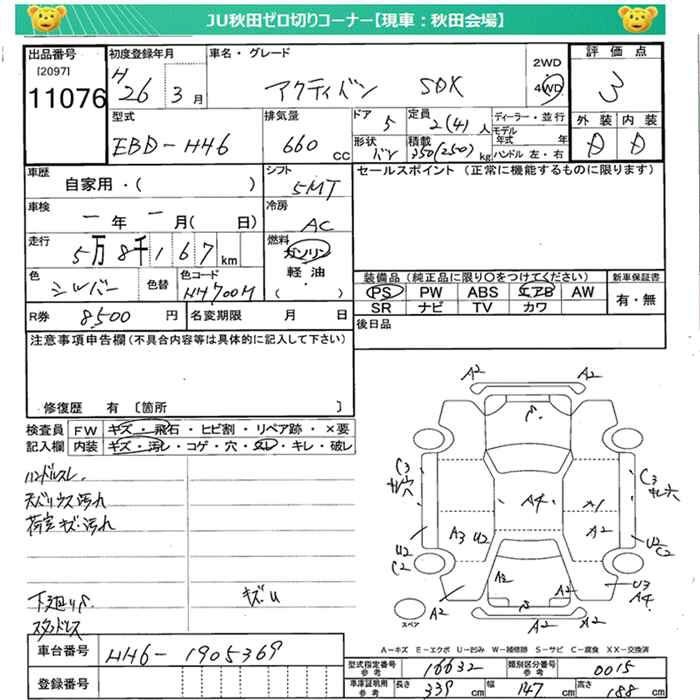 JU秋田ゼロ切りコーナー【現車：秋田会場】
出品番号 初度登録年月 車名・グレード 評価点
[2097]
11076
H26 3月
アクティバン SDK
2WD
4WD
3
型式 排気量 ドア 定員 ディーラー・並行 外装 内装
EBD-HH6 660cc 5 2(4)人
モデル年式 年
A A
形状 積載 ハンドル 左・右
バン 350(250)kg
車歴 シフト セールスポイント (正常に機能するものに限ります)
自家用・( ) 5MT
車検 冷房
一年一月( 日) AC
走行 燃料
5万8千167km ガソリン
軽油
・
( )
色 色替 色コード
シルバー NH700M
装備品(純正品に限り○をつけてください) 新車保証書
PS PW ABS エアB AW 有・無
SR ナビ TV カワ
R券 8,500円 名変期限 月 日
後日品
注意事項申告欄(不具合内容等は具体的に記入して下さい)
修復歴 有 [箇所 ]
検査員 FW キズ・飛石・ヒビ割・リペア跡・×要
記入欄 内装 キズ・汚レ・コゲ・穴・スレ・キレ・破レ
ハンドルスレ
天バリウス汚れ
荷室キズ・汚れ
下廻りS
スタッドレス
キズU
A2 A2
S
C3 C3
穴
A4 A1
A3 U2 A2
U2 U2
C2 C2
A2 A2
U3
A4
A2 S A2
A2
スペア
A－キズ E－エクボ U－凹ミ W－補修跡 S－サビ C－腐食 XX－交換済
車台番号 HH6-1905369
登録番号
型式指定番号 参考 16632 類別区分番号 参考 0015
車庫証明用 参考 長さ 339cm 幅 147cm 高さ 188cm